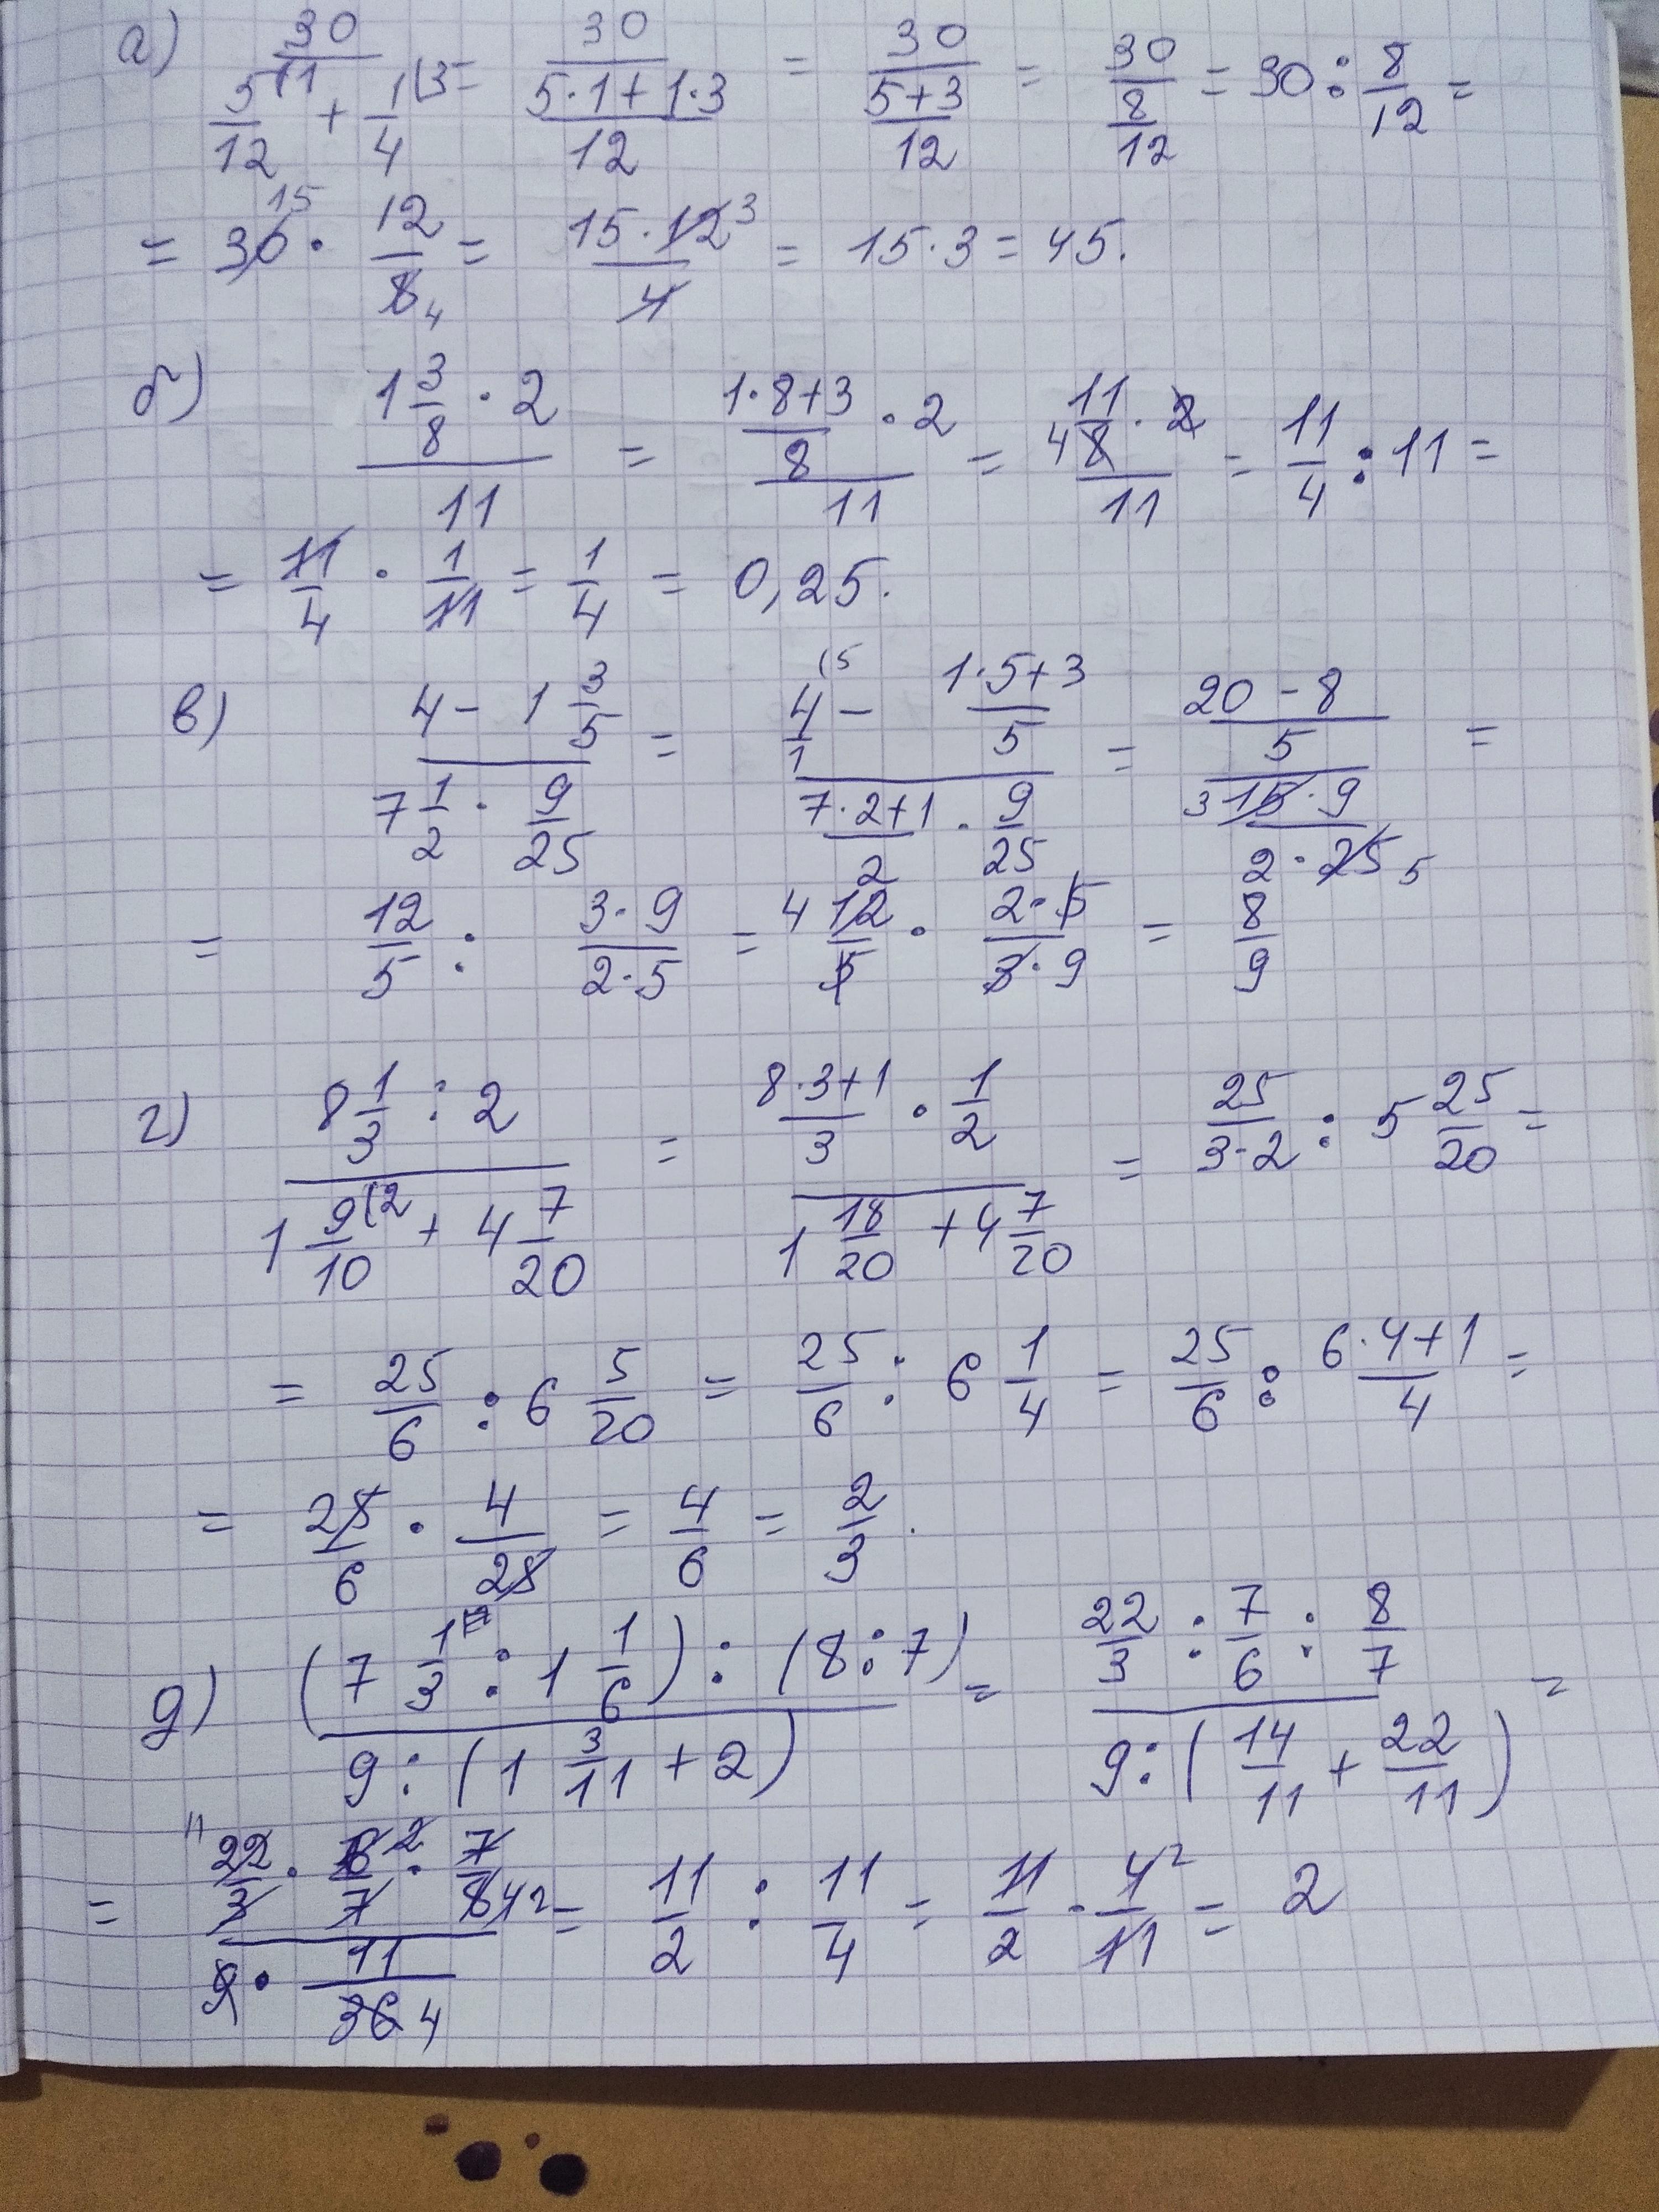 а) 30/(5/12 (1 + 1/4 (3) = 30/((5·1+1·3)/12) = 30/((5+3)/12) = 30/(8/12) = 30 : 8/12 =
= 30 15 · 12/8 4 = 15·12 3/4 = 15·3 = 45.
б) (1 3/8 · 2)/11 = ((1·8+3)/8 · 2)/11 = (11/8 4 · 2)/11 = 11/4 : 11 =
= 11/4 · 1/11 = 1/4 = 0,25.
в) (4 - 1 3/5)/(7 1/2 · 9/25) = (4/1 (5 - (1·5+3)/5)/((7·2+1)/2 · 9/25) = ((20-8)/5)/(3 15·9/(2·25 5)) =
= 12/5 : (3·9)/(2·5) = 4 12/5 · (2·5)/(3·9) = 8/9
г) (8 1/3 : 2)/(1 9/10 (2 + 4 7/20) = ((8·3+1)/3 · 1/2)/(1 18/20 + 4 7/20) = 25/(3·2) : 5 25/20 =
= 25/6 : 6 5/20 = 25/6 : 6 1/4 = 25/6 : (6·4+1)/4 =
= 25/6 · 4/25 = 4/6 = 2/3.
д) ((7 1/3 : 1 1/6) : (8:7))/(9 : (1 3/11 + 2)) = (22/3 : 7/6 : 8/7)/(9 : (14/11 + 22/11)) =
= (11 22/3 · 6 2/7 · 7/8 4 2)/(9 · 11/36 4) = 11/2 : 11/4 = 11/2 · 4 2/11 = 2